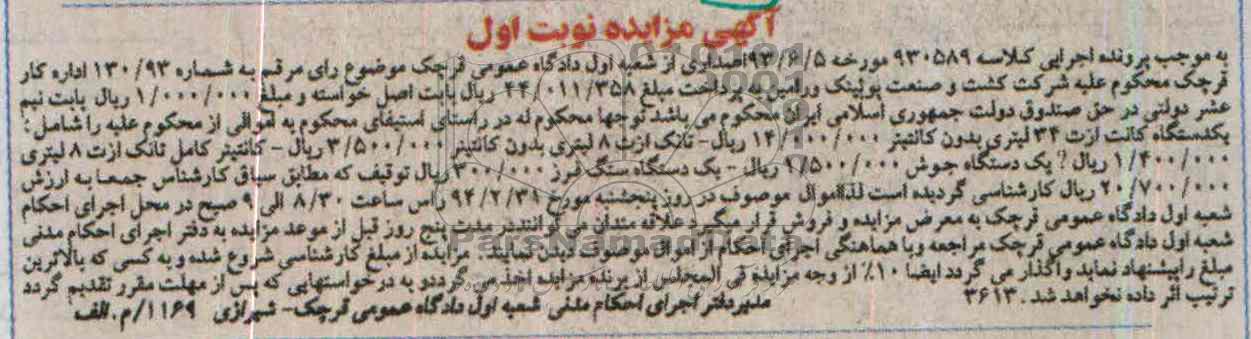 آگهی مزایده نوبت اول
به موجب پرونده اجرایی کلاسه ۹۳۰۵۸۹ مورخه ۹۳/۶/۵ اصداری از شعبه اول دادگاه عمومی قرچک موضوع رای مرقم به شماره ۱۳۰/۹۳ اداره کار
قرچک محکوم علیه شرکت کشت و صنعت پوئینک ورامین به پرداخت مبلغ ۴۴/۰۱۱/۳۵۸ ریال بابت اصل خواسته و مبلغ ۱/۰۰۰/۰۰۰ ریال بابت نیم
عشر دولتی در حق صندوق دولت جمهوری اسلامی ایران محکوم می باشد توجها محکوم له در راستای استیفای محکوم به اموالی از محکوم علیه را شامل:
یکدستگاه کانت ازت ۳۴ لیتری بدون کانتینر ۱۴/۰۰۰/۰۰۰ ریال- تانک ازت ۸ لیتری بدون کانتینر ۳/۵۰۰/۰۰۰ ریال- کانتینر کامل تانک ازت ۸ لیتری
۱/۴۰۰/۰۰۰ ریال ? یک دستگاه جوش ۱/۵۰۰/۰۰۰ ریال - یک دستگاه سنگ فرز ۳۰۰/۰۰۰ ریال توقیف که مطابق سیاق کارشناس جمعا به ارزش
۲۰/۷۰۰/۰۰۰ ریال کارشناسی گردیده است لذا اموال موصوف در روز پنجشنبه مورخ ۹۴/۲/۳۱ راس ساعت ۸/۳۰ الی ۹ صبح در محل اجرای احکام
شعبه اول دادگاه عمومی قرچک به معرض مزایده و فروش قرار میگیرد علاقه مندان می توانند در مدت پنج روز قبل از موعد مزایده به دفتر اجرای احکام مدنی
شعبه اول دادگاه عمومی قرچک مراجعه و با هماهنگی اجرای احکام از اموال موصوف دیدن نمایند. مزایده از مبلغ کارشناسی شروع شده و به کسی که بالاترین
مبلغ را پیشنهاد نماید واگذار می گردد ایضا ۱۰٪ از وجه مزایده فی المجلس از برنده مزایده اخذ می گردد و به درخواستهایی که پس از مهلت مقرر تقدیم گردد
ترتیب اثر داده نخواهد شد. ۳۶۱۳
مدیر دفتر اجرای احکام مدنی شعبه اول دادگاه عمومی قرچک- شیرازی ۱۱۶۹/م.الف
ParsNamadData